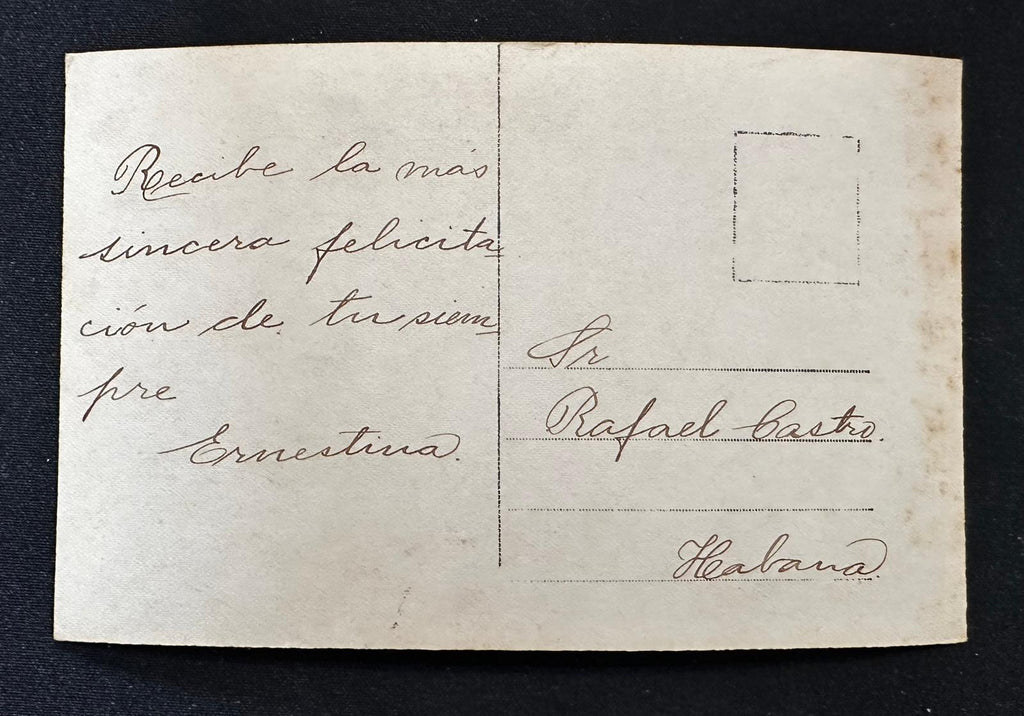 Recibe la más
sincera felicita-
ción de tu siem-
pre
Ernestina.
Sr
Rafael Castro.
Habana